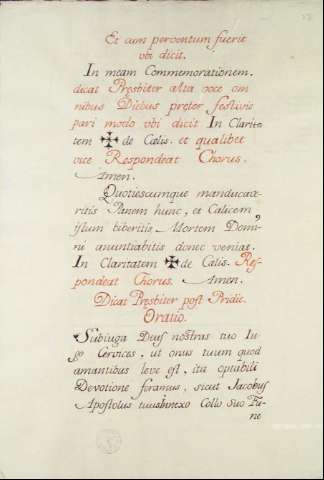 Et cum perventum fuerit
vbi dicit.
In meam Commemorationem.
dicat Presbiter alta voce om
nibus Diebus preter festivis
pari modo vbi dicit In Clarita
tem ✠ de Cælis. et qualibet
vice Respondeat Chorus.
Amen.
Quotiescumque manducave
ritis Panem hunc, et Calicem,
istum biberitis, Mortem Domi
ni anuntiabitis donec veniat.
In Claritatem ✠ de Cælis. Res-
pondeat Chorus. Amen.
Dicat Presbiter post Pridie.
Oratio.
Subiuga Deus nostras tuo Iu
go Cervices, ut onus tuum quod
amantibus leve est, ita optabili
Devotione feramus, sicut Jacobus
Apostolus tuus innexo Collo suo Fu-
ne